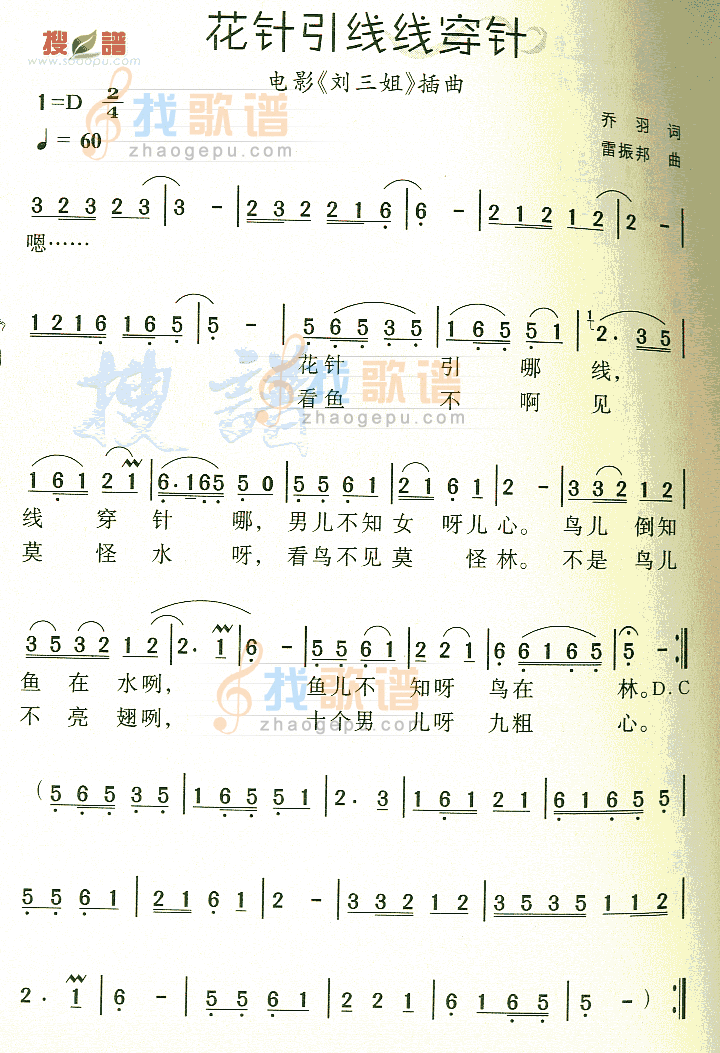 搜谱
www.sooopu.com
花针引线线穿针
电影《刘三姐》插曲
1=D 2/4
♩= 60
找歌谱
zhaogepu.com
乔羽 词
雷振邦 曲
3 2 3 2 3 | 3 - | 2 3 2 2 1 6 | 6 - | 2 1 2 1 2 | 2 - |
嗯……
1 2 1 6 1 6 5 | 5 - | 5 6 5 3 5 | 1 6 5 5 1 | 2. 3 5 |
花针 引 哪 线，
看鱼 不 啊 见
搜谱
找歌谱
zhaogepu.com
1 6 1 2 1 | 6. 1 6 5 5 0 | 5 5 6 1 | 2 1 6 1 | 2 - | 3 3 2 1 2 |
线 穿 针 哪， 男儿不知 女 呀儿 心。 鸟儿 倒知
莫 怪 水 呀， 看鸟不见 莫 怪林。 不是 鸟儿
3 5 3 2 1 2 | 2. 1 | 6 - | 5 5 6 1 | 2 2 1 | 6 6 1 6 5 | 5 - :||
鱼 在 水咧， 鱼儿不 知呀 鸟在 林。D.C
不 亮 翅咧， 十个男 儿呀 九粗 心。
找歌谱
zhaogepu.com
（5 6 5 3 5 | 1 6 5 5 1 | 2. 3 | 1 6 1 2 1 | 6 1 6 5 5 |
5 5 6 1 | 2 1 6 1 | 2 - | 3 3 2 1 2 | 3 5 3 5 1 1 2 |
2. 1 | 6 - | 5 5 6 1 | 2 2 1 | 6 1 6 5 | 5 - ）:||